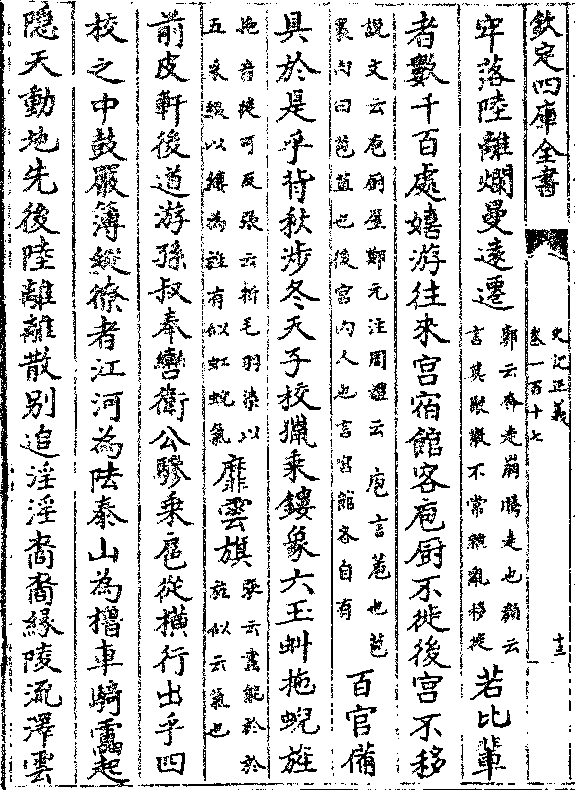 欽定四庫全書
史記正義
卷一百十七
十三
牢落陸離爛曼遠遷
郭云奔走崩騰走也顔云
言其獸散不常雜亂移徙
若比輩
者數千百處嬉游往來宫宿館客庖厨不徙後宫不移
説文云庖厨屋鄭元注周禮云庖言苞也苞
裹肉曰苞苴也後宫内人也言宫館各自有
百官備
具於是乎背秋涉冬天子校獵乘鏤象六玉虯拖蜺旌
拖音徒可反張云析毛羽染以
五采綴以縷為旌有似虹蜺氣
靡雲旗
張云畫熊於於
旌似云氣也
前皮軒後道游孫叔奉轡衛公驂乘扈從横行出乎四
校之中鼓嚴簿縱獠者江河為阹泰山為櫓車騎靁起
隱天動地先後陸離離散别追淫淫裔裔緣陵流澤雲